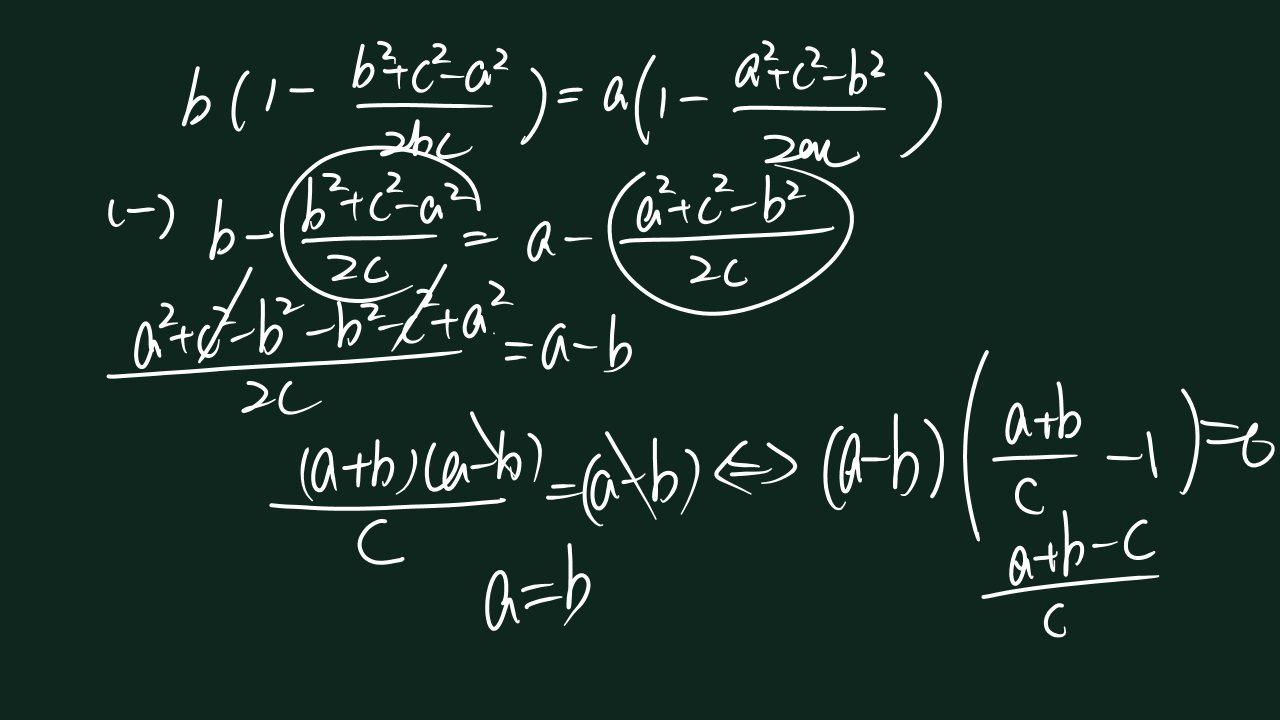 b(1 - (b²+c²-a²)/(2bc)) = a(1 - (a²+c²-b²)/(2ac))
(-) b - (b²+c²-a²)/(2c) = a - (a²+c²-b²)/(2c)
(a²+c²-b²-b²-c²+a²)/(2c) = a-b
((a+b)(a-b))/c = (a-b) ⇔ (a-b)((a+b)/c - 1) = 0
(a+b-c)/c
a=b